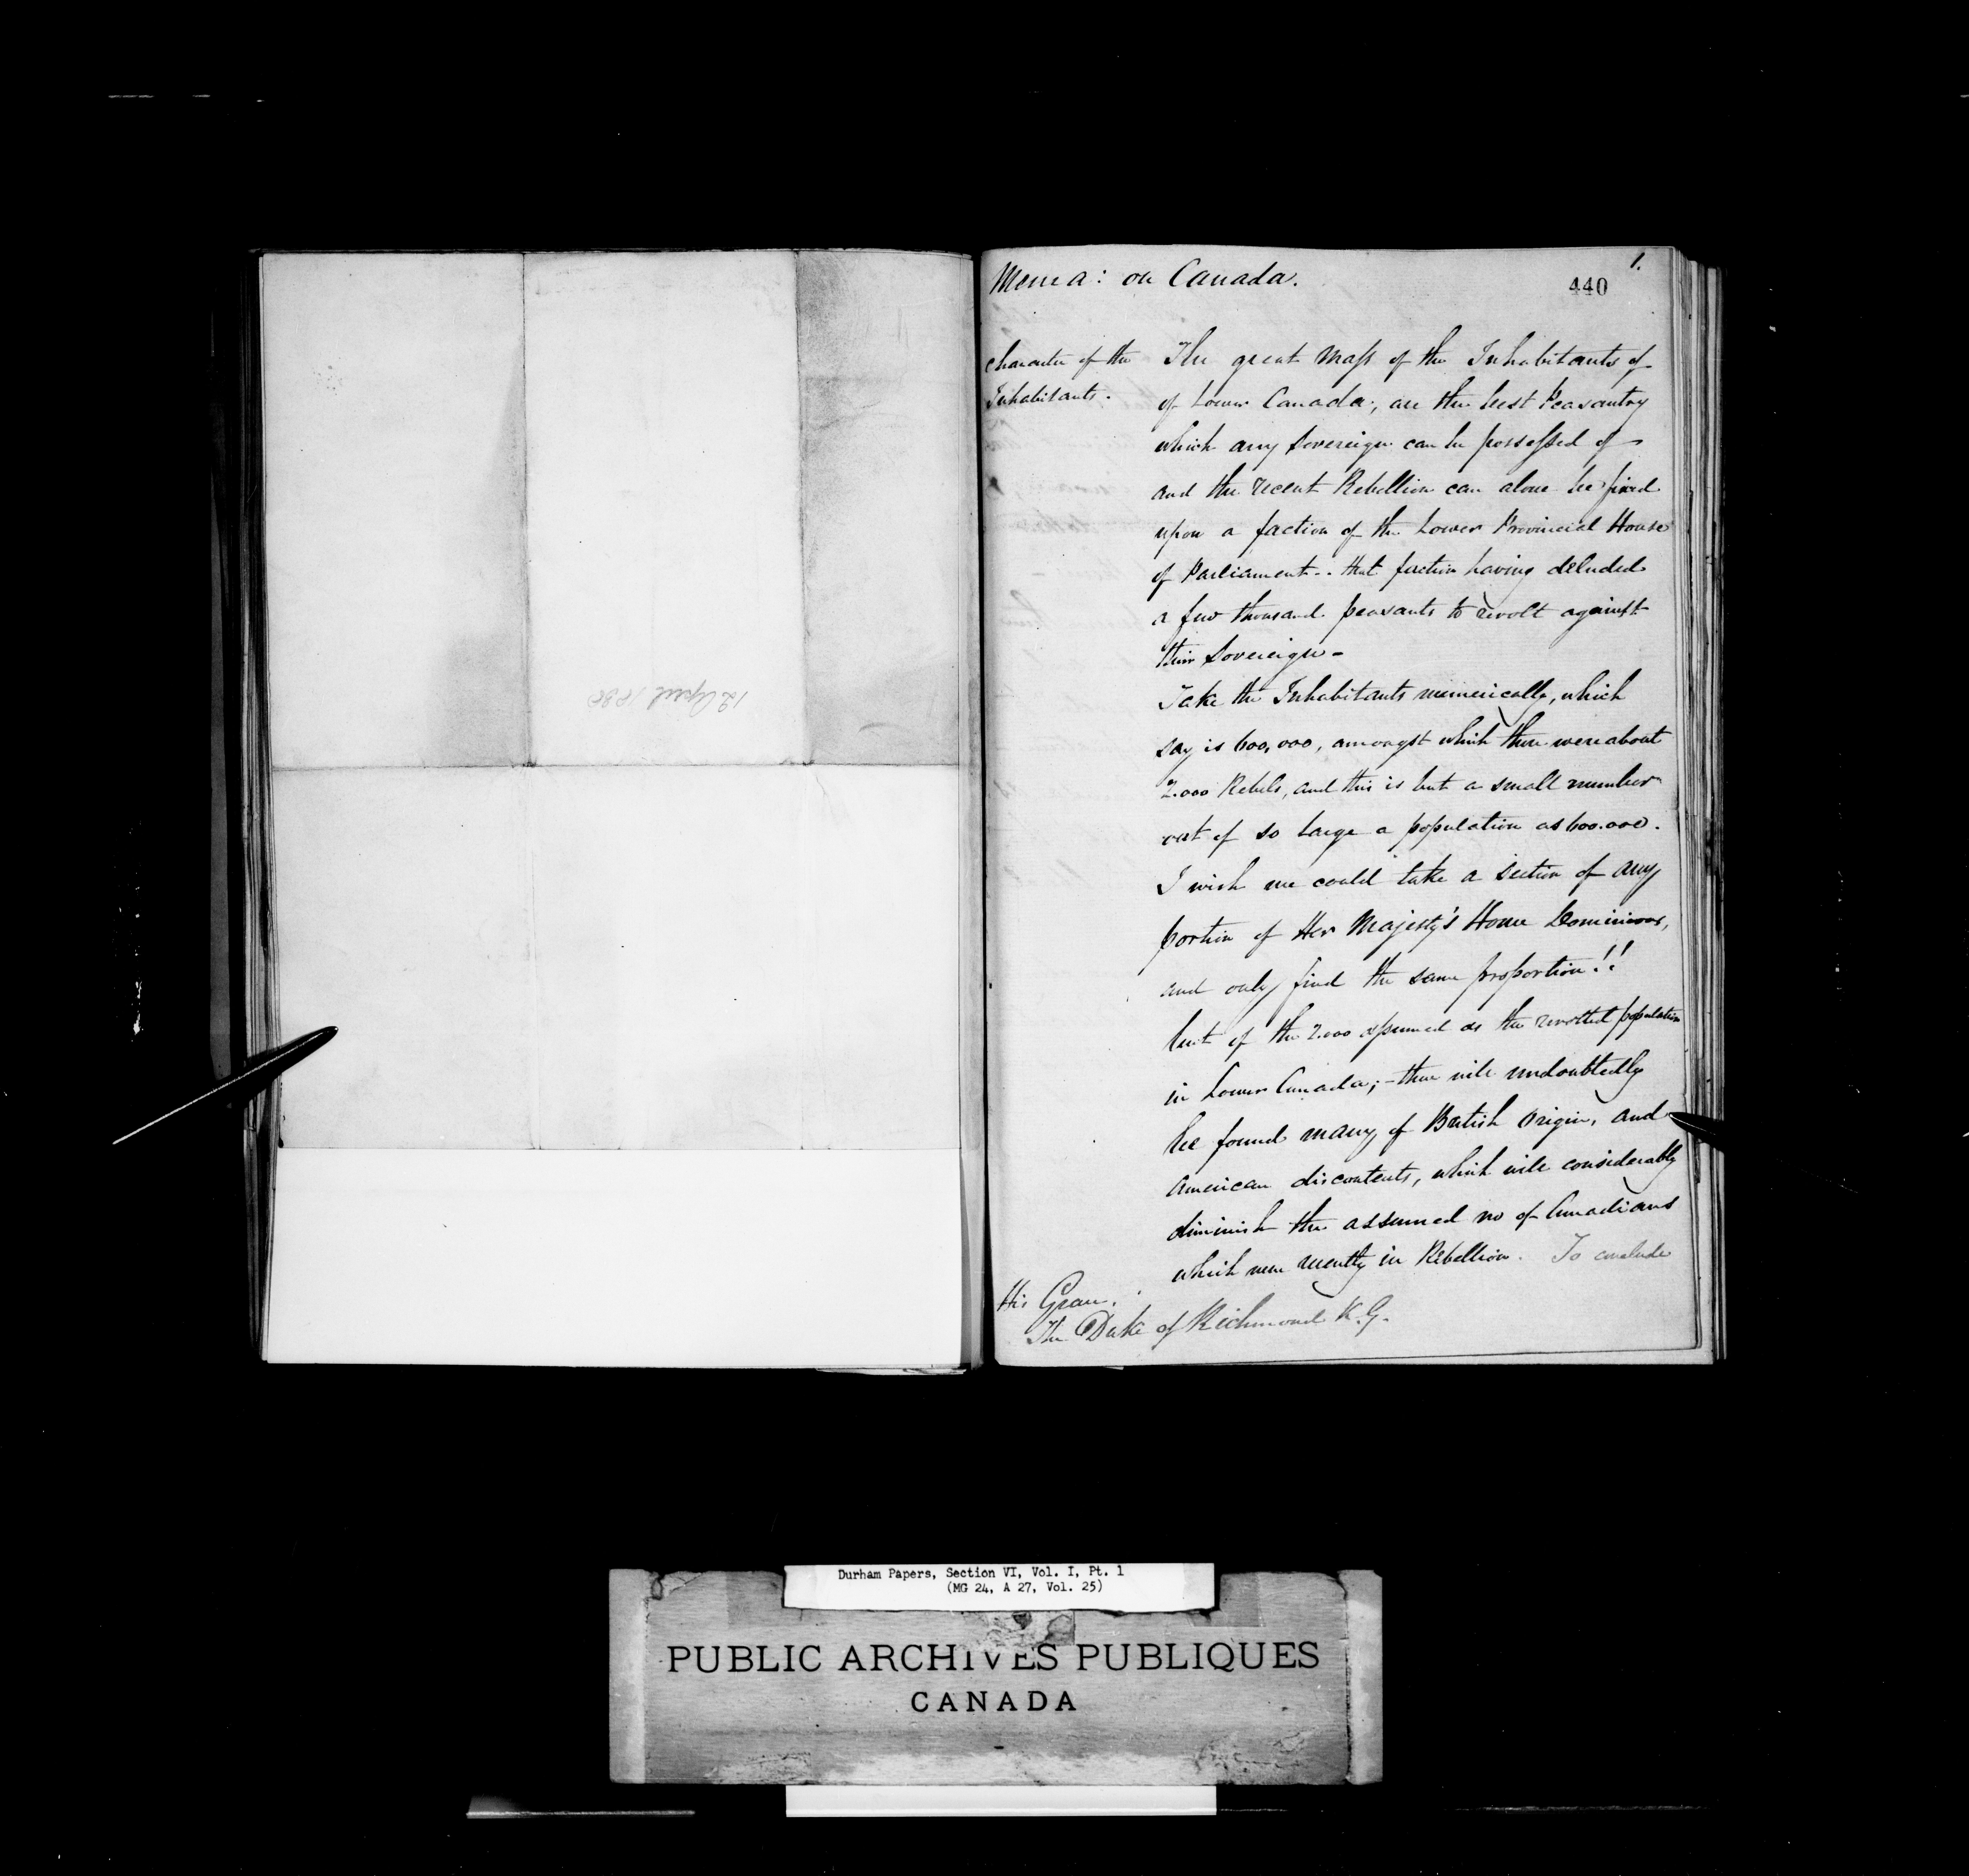 12 April 1838
1.
Mema: on Canada.
440
Character of the
Inhabitants.
The great Mass of the Inhabitants of
of Lower Canada, are the best Peasantry
which any Sovereign can be possessed of
and the recent Rebellion can alone be fixed
upon a faction of the Lower Provincial House
of Parliament.. that faction having deluded
a few thousand peasants to revolt against
their Sovereign -
Take the Inhabitants numerically, which
say is 600,000, amongst which there were about
2.000 Rebels, and this is but a small number
out of so large a population as 600.000.
I wish we could take a section of any
portion of Her Majesty's Home Dominions,
and only find the same proportion!!
but of the 2.000 assumed as the revolted population
in Lower Canada; - there will undoubtedly
be found many of British Origin, and
American discontents, which will considerably
diminish the assumed no of Canadians
which were recently in Rebellion. To conclude
His Grace.
The Duke of Richmond K.G.
Durham Papers, Section VI, Vol. I, Pt. 1
(MG 24, A 27, Vol. 25)
PUBLIC ARCHIVES PUBLIQUES
CANADA